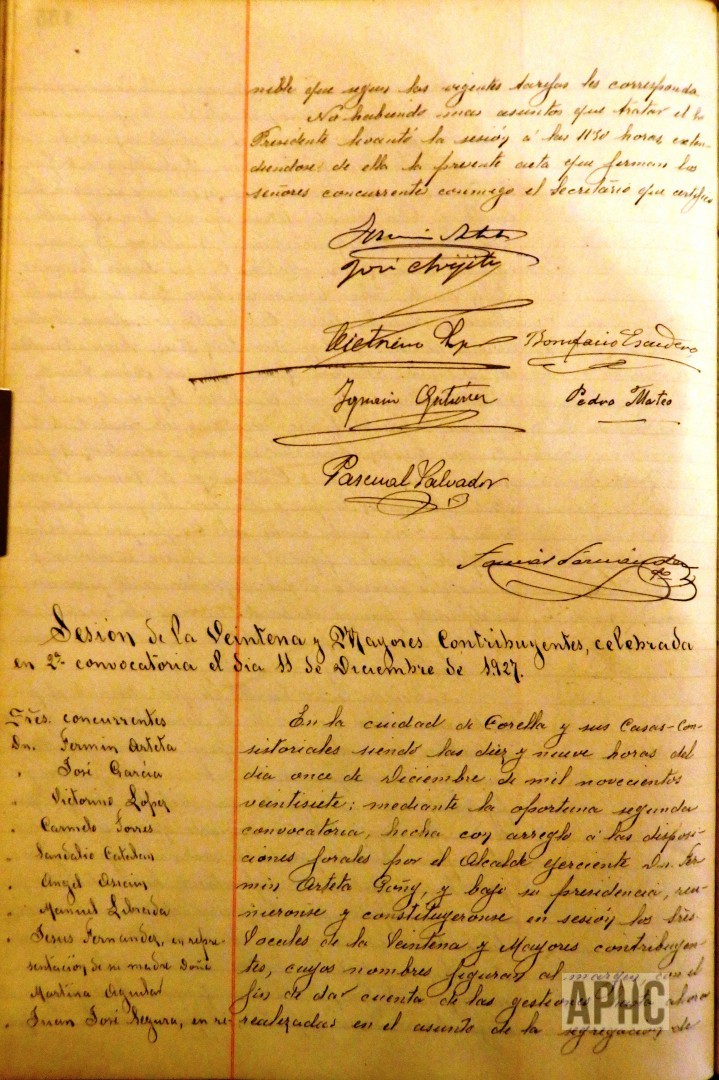 nible que segun las vigentes tarifas les corresponda
No habiendo mas asuntos que tratar el Sr
Presidente levantó la sesión á las 11'30 horas exten-
diendose de ella la presente acta que firman los
señores concurrente conmigo el Secretario que certifico
José
Victorino Bonifacio Escudero
Ignacio Gutiérrez Pedro Mateo
Pascual Salvador
Tomás Fernández
Sesión de la Veintena y Mayores Contribuyentes, celebrada
en 2ª convocatoria el dia 11 de Diciembre de 1.927.
Sres. concurrentes
Dn. Fermín Arteta
" José García
" Victorino López
" Carmelo Torres
" Sandalio Catalan
" Angel Asiain
" Manuel Librada
" Jesus Fernandez, en repre-
sentación de su madre Doña
Martina Aguilar
" Juan José Segura, en re-
En la ciudad de Corella y sus Casas-Con-
sistoriales siendo las diez y nueve horas del
dia once de Diciembre de mil novecientos
veintisiete; mediante la oportuna segunda
convocatoria, hecha con arreglo á las disposi-
ciones forales por el Alcalde ejerciente Dn. Fer-
min Arteta Goñy, y bajo su presidencia, reu-
nieronse y constituyeronse en sesión los Sres
Vocales de la Veintena y Mayores contribuyen-
tes, cuyos nombres figuran al margen con el
fin de dar cuenta de las gestiones hasta ahora
realizadas en el asunto de la segregación de
APHC